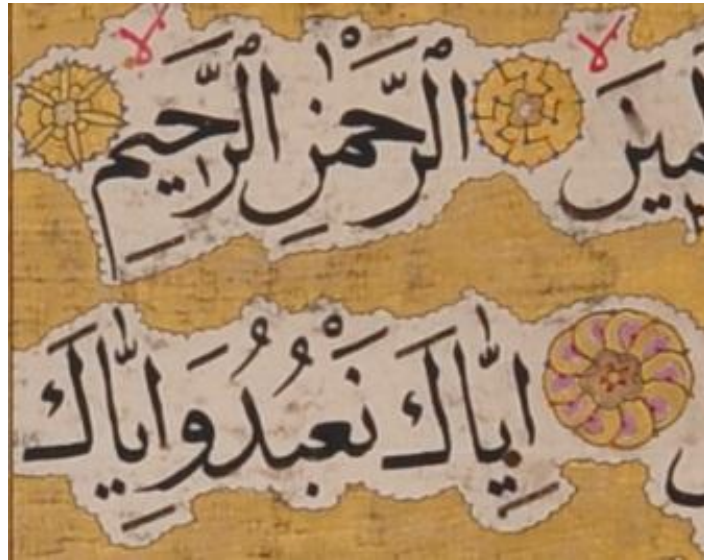 لا لا
الرَّحْمٰنِ الرَّحِيمِ
اِيَّاكَ نَعْبُدُ وَاِيَّاكَ